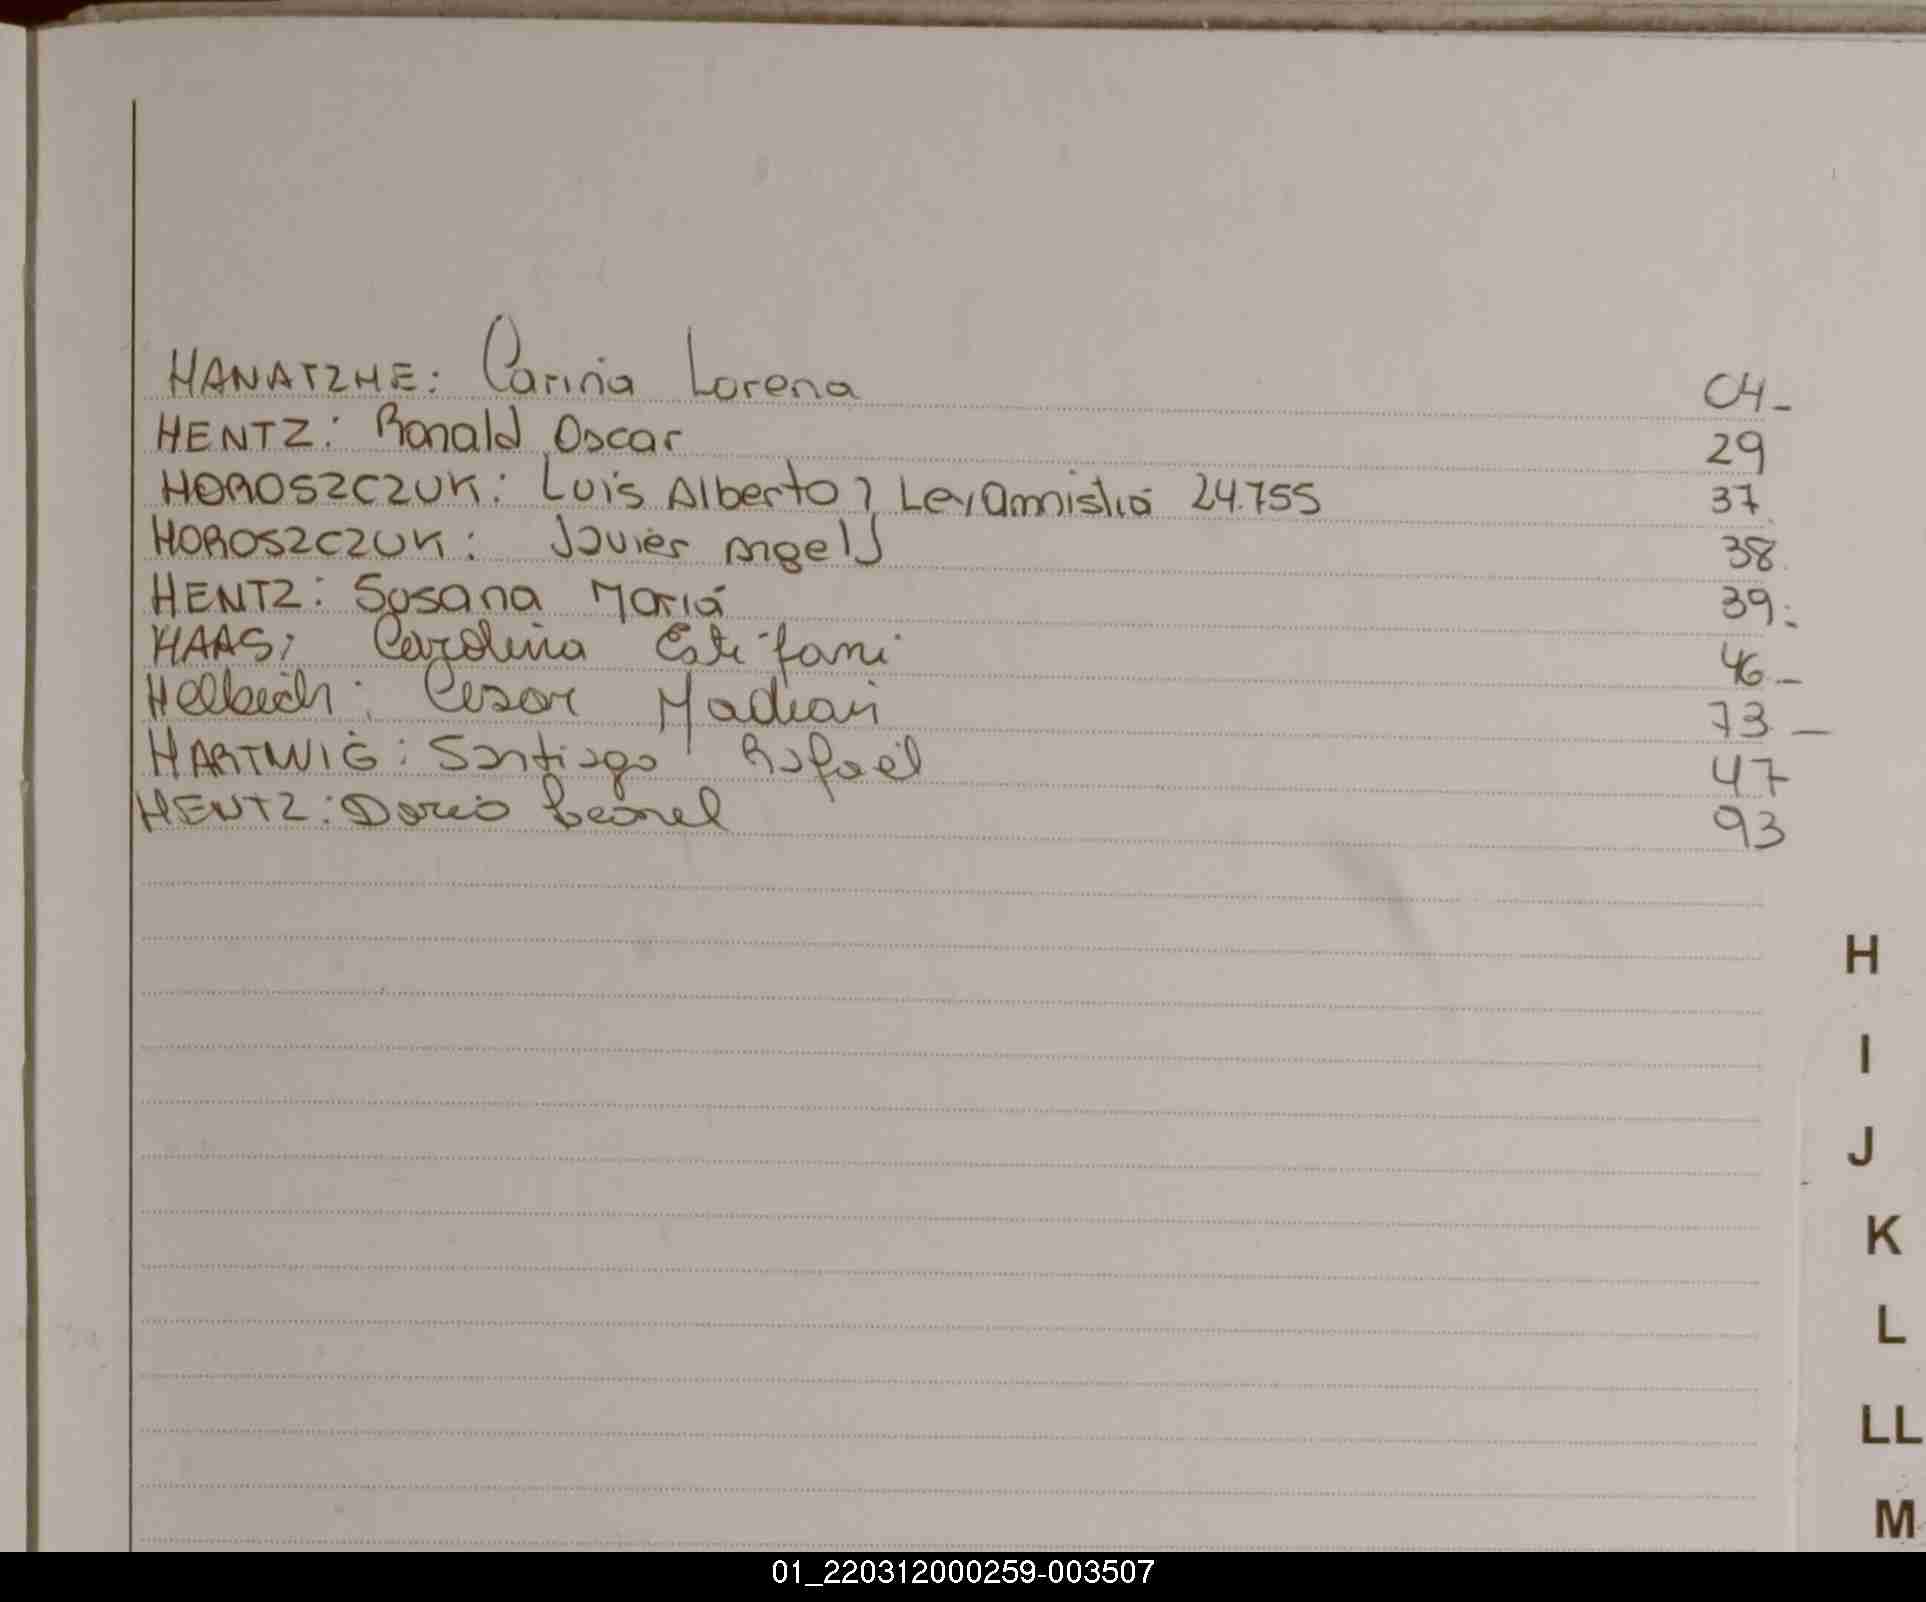 HANATZHE: Carina Lorena 04-
HENTZ: Ronald Oscar 29
HOROSZCZUK: Luis Alberto } Ley Amnistiá 24.755 37
HOROSZCZUK: Javier Angel 38
HENTZ: Susana Mariá 39:
HAAS; Carolina Estifani 46-
Helbich: Cesar 73-
HARTWIG: Santiago Rafael 47
HENTZ: Dario Leonel 93
H
I
J
K
L
LL
M
01_220312000259-003507